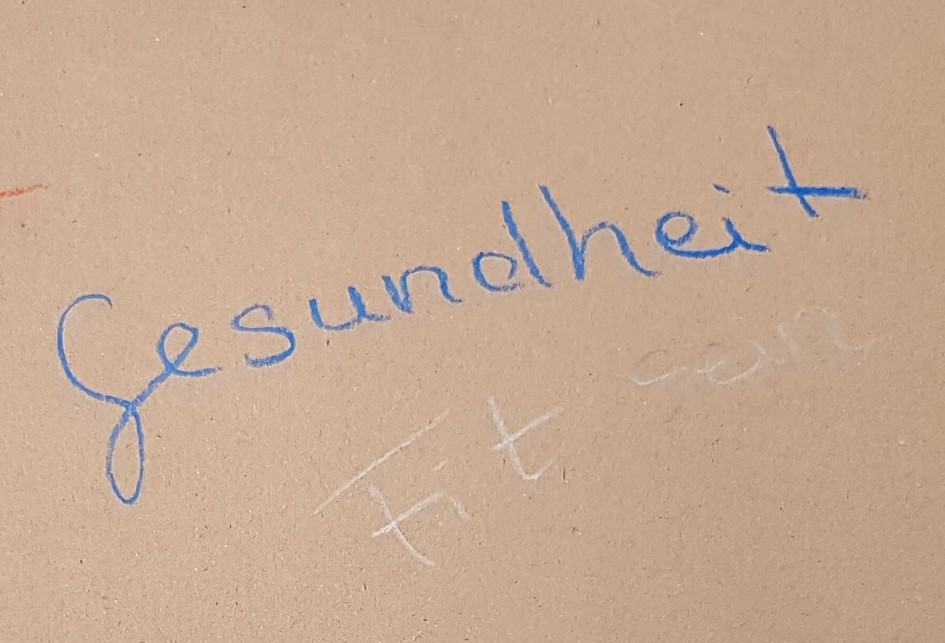 Gesundheit
Fit sein